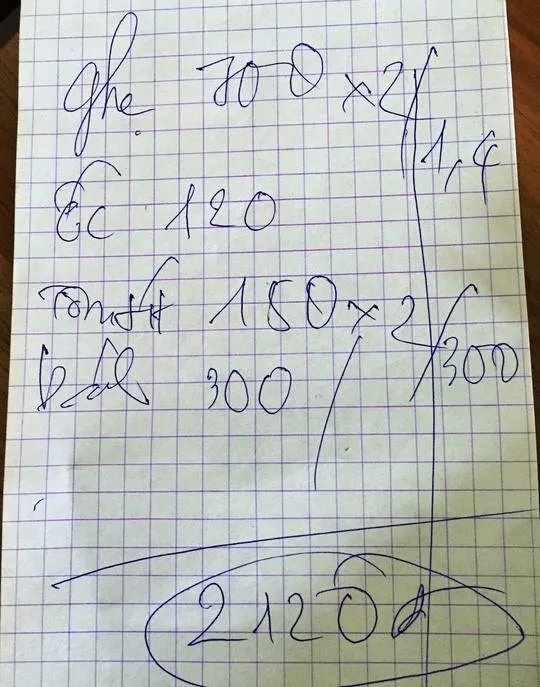 ghẹ 700 x 2 / 1,4
Ốc 120
Tôm 150 x 2 / 300
300 /
2120đ